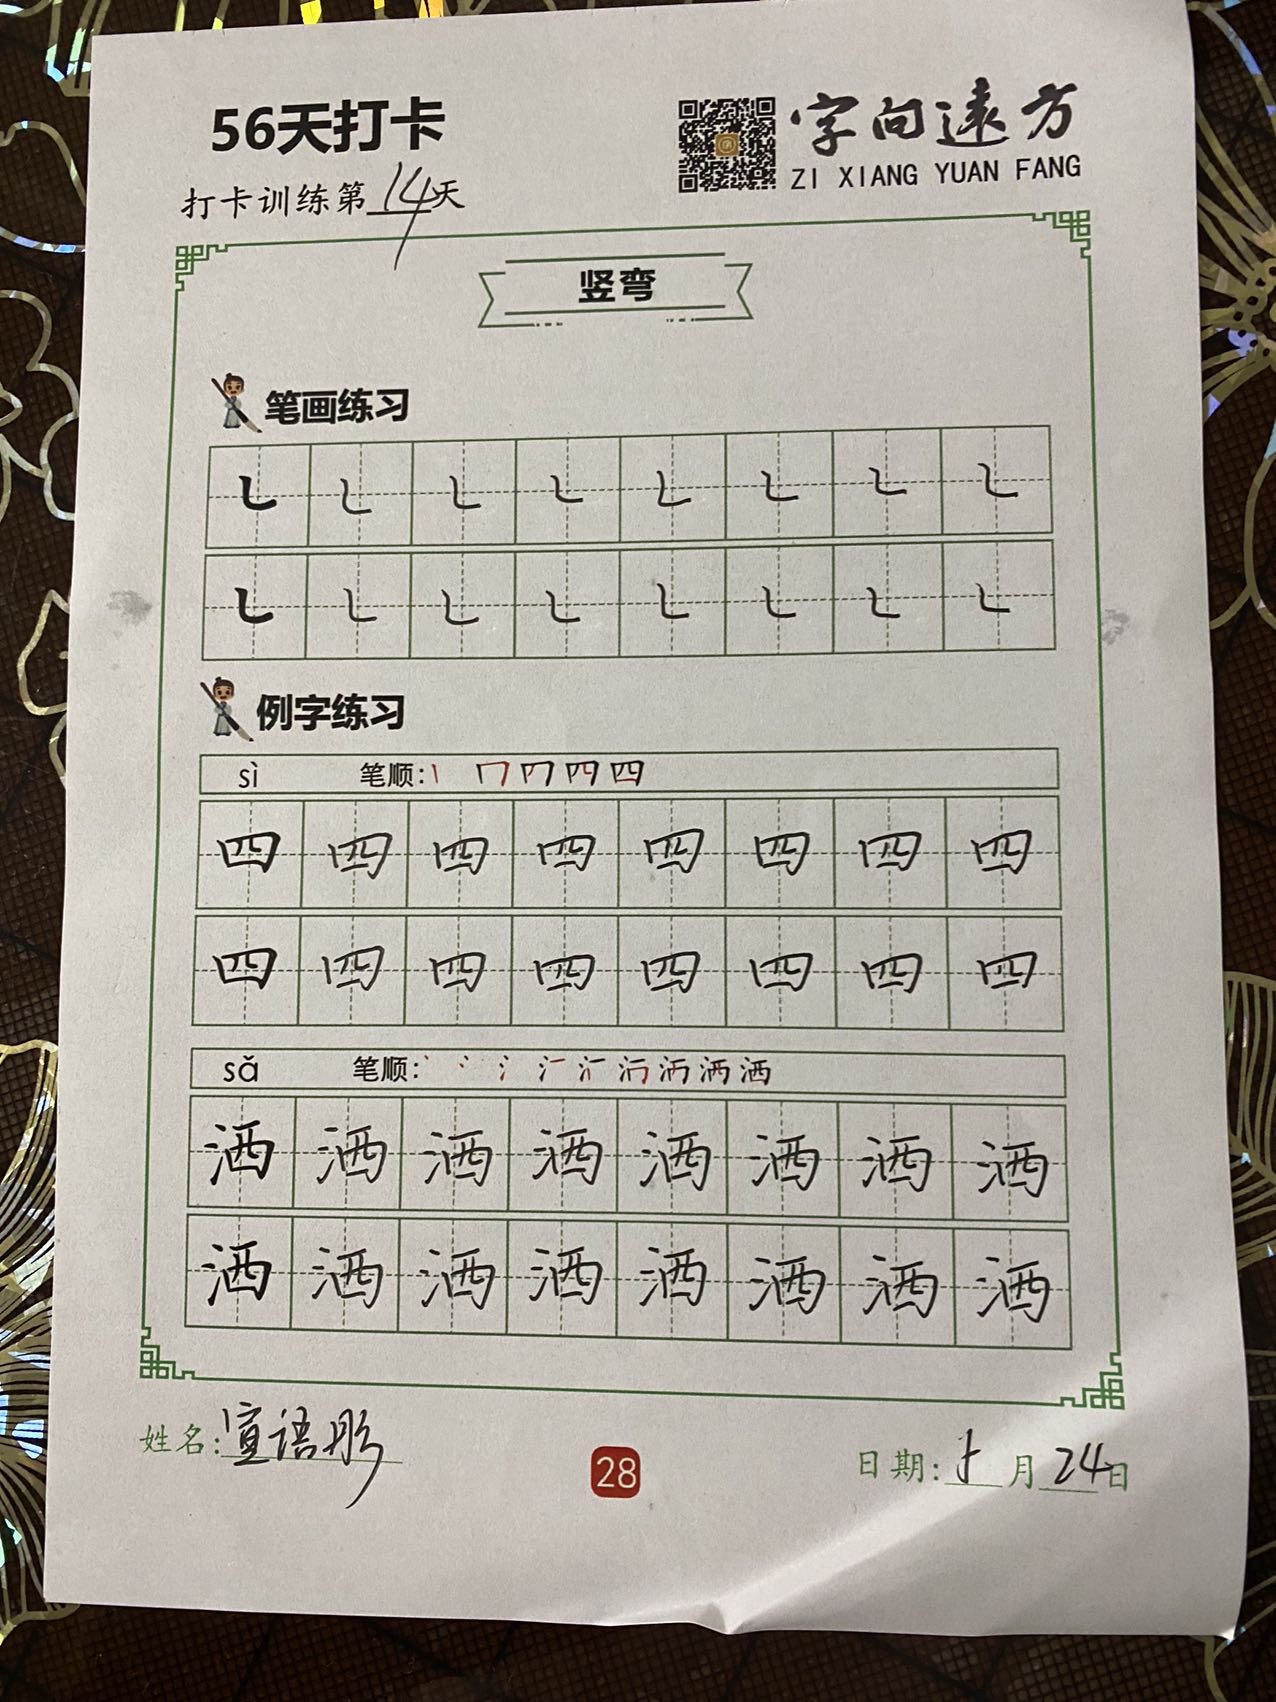 56天打卡
字向远方
ZI XIANG YUAN FANG
打卡训练第14天
竖弯
笔画练习
例字练习
sì 笔顺:
四
四 四 四 四 四 四 四 四
四 四 四 四 四 四 四 四
sǎ 笔顺:
洒
洒 洒 洒 洒 洒 洒 洒 洒
洒 洒 洒 洒 洒 洒 洒 洒
姓名:宣语彤
28
日期: 月24日